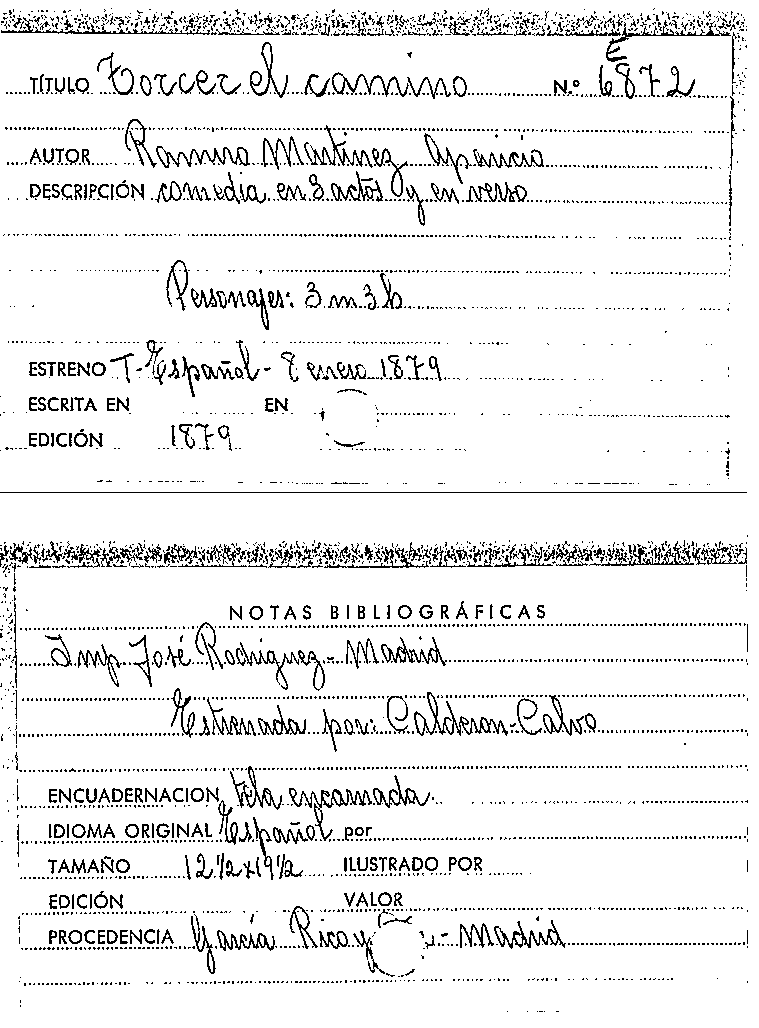 E
TÍTULO Torcer el camino N.º 6872
AUTOR Ramiro Martinez Aparicio
DESCRIPCIÓN comedia en 3 actos y en verso
Personajes: 3 m 3 h
ESTRENO T-Español- 8 enero 1879
ESCRITA EN EN
EDICIÓN 1879
NOTAS BIBLIOGRÁFICAS
Imp José Rodriguez-Madrid
Estrenada por: Calderon-Calvo
ENCUADERNACION tela encarnada.
IDIOMA ORIGINAL Español por
TAMAÑO 12 1/2 x 19 1/2 ILUSTRADO POR
EDICIÓN VALOR
PROCEDENCIA García Rico y - Madrid